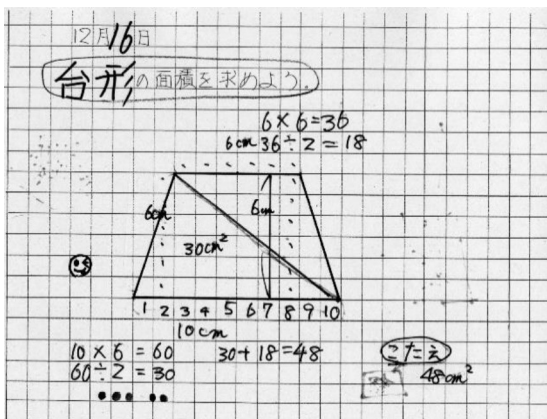 12月16日
台形の面積を求めよう.
6×6=36
6cm 36÷2=18
6cm
6cm
30cm²
1 2 3 4 5 6 7 8 9 10
10cm
10×6=60
60÷2=30
30+18=48
こたえ
48cm²